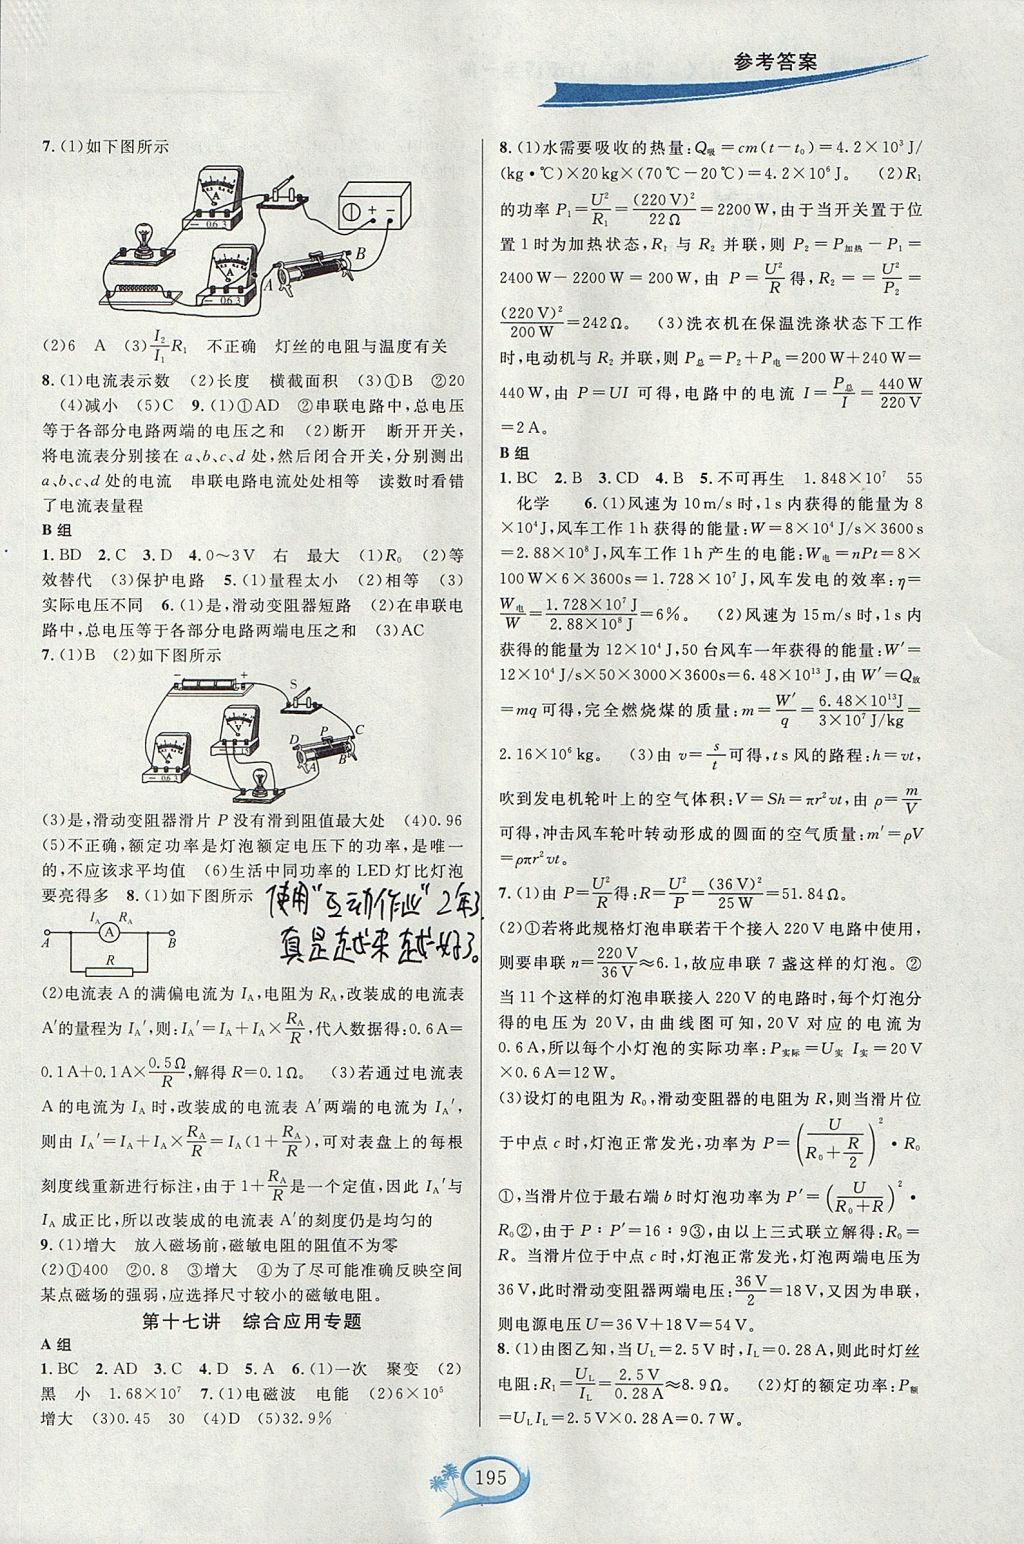 参考答案
7.(1)如下图所示
A
－ 0.6 3
A
－ 0.6 3
＋ －
A
B
(2)6　A　(3)I₂/I₁ R₁　不正确　灯丝的电阻与温度有关
8.(1)电流表示数　(2)长度　横截面积　(3)①B　②20
(4)减小　(5)C　9.(1)①AD　②串联电路中,总电压
等于各部分电路两端的电压之和　(2)断开　断开开关,
将电流表分别接在a、b、c、d处,然后闭合开关,分别测出
a、b、c、d处的电流　串联电路电流处处相等　读数时看错
了电流表量程
B组
1.BD　2.C　3.D　4.0～3V　右　最大　(1)R₀　(2)等
效替代　(3)保护电路　5.(1)量程太小　(2)相等　(3)
实际电压不同　6.(1)是,滑动变阻器短路　(2)在串联电
路中,总电压等于各部分电路两端电压之和　(3)AC
7.(1)B　(2)如下图所示
－ ＋
S
V
D P C
A
－ 0.6 3
A B
(3)是,滑动变阻器滑片P没有滑到阻值最大处　(4)0.96
(5)不正确,额定功率是灯泡额定电压下的功率,是唯一
的,不应该求平均值　(6)生活中同功率的LED灯比灯泡
要亮得多　8.(1)如下图所示
使用“互动作业”2年了,
真是越来越好了。
I_A R_A
A A B
R
(2)电流表A的满偏电流为I_A,电阻为R_A,改装成的电流表
A′的量程为I_A′,则:I_A′＝I_A＋I_A×R_A/R,代入数据得:0.6A＝
0.1A＋0.1A×0.5Ω/R,解得R＝0.1Ω。　(3)若通过电流表
A的电流为I_A时,改装成的电流表A′两端的电流为I_A′,
则由I_A′＝I_A＋I_A×R_A/R＝I_A(1＋R_A/R),可对表盘上的每根
刻度线重新进行标注,由于1＋R_A/R是一个定值,因此I_A′与
I_A成正比,所以改装成的电流表A′的刻度仍是均匀的
9.(1)增大　放入磁场前,磁敏电阻的阻值不为零
(2)①400　②0.8　③增大　④为了尽可能准确反映空间
某点磁场的强弱,应选择尺寸较小的磁敏电阻。
第十七讲　综合应用专题
A组
1.BC　2.AD　3.C　4.D　5.A　6.(1)一次　聚变　(2)
黑　小　1.68×10⁷　7.(1)电磁波　电能　(2)6×10⁵
增大　(3)0.45　30　(4)D　(5)32.9%
8.(1)水需要吸收的热量:Q吸＝cm(t－t₀)＝4.2×10³J/
(kg·℃)×20kg×(70℃－20℃)＝4.2×10⁶J。　(2)R₁
的功率P₁＝U²/R₁＝(220V)²/22Ω＝2200W,由于当开关置于位
置1时为加热状态,R₁与R₂并联,则P₂＝P加热－P₁＝
2400W－2200W＝200W,由P＝U²/R得,R₂＝＝U²/P₂
(220V)²/200W＝242Ω。　(3)洗衣机在保温洗涤状态下工作
时,电动机与R₂并联,则P总＝P₂＋P电＝200W＋240W＝
440W,由P＝UI可得,电路中的电流I＝P总/I＝440W/220V
＝2A。
B组
1.BC　2.B　3.CD　4.B　5.不可再生　1.848×10⁷　55
化学　6.(1)风速为10m/s时,1s内获得的能量为8
×10⁴J,风车工作1h获得的能量:W＝8×10⁴J/s×3600s
＝2.88×10⁸J,风车工作1h产生的电能:W电＝nPt＝8×
100W×6×3600s＝1.728×10⁷J,风车发电的效率:η＝
W电/W＝1.728×10⁷J/2.88×10⁸J＝6%。　(2)风速为15m/s时,1s内
获得的能量为12×10⁴J,50台风车一年获得的能量:W′＝
12×10⁴J/s×50×3000×3600s＝6.48×10¹³J,由W′＝Q放
＝mq可得,完全燃烧煤的质量:m＝W′/q＝6.48×10¹³J/3×10⁷J/kg＝
2.16×10⁶kg。　(3)由v＝s/t可得,ts风的路程:h＝vt,
吹到发电机轮叶上的空气体积:V＝Sh＝πr²vt,由ρ＝m/V
可得,冲击风车轮叶转动形成的圆面的空气质量:m′＝ρV
＝ρπr²vt。
7.(1)由P＝U²/R得:R＝U²/P＝(36V)²/25W＝51.84Ω。
(2)①若将此规格灯泡串联若干个接入220V电路中使用,
则要串联n＝220V/36V≈6.1,故应串联7盏这样的灯泡。②
当11个这样的灯泡串联接入220V的电路时,每个灯泡分
得的电压为20V,由曲线图可知,20V对应的电流为
0.6A,所以每个小灯泡的实际功率:P实际＝U实I实＝20V
×0.6A＝12W。
(3)设灯的电阻为R₀,滑动变阻器的电阻为R,则当滑片位
于中点c时,灯泡正常发光,功率为P＝(U/(R₀＋R/2))²·R₀
①,当滑片位于最右端b时灯泡功率为P′＝(U/(R₀＋R))²·
R₀②,由于P∶P′＝16∶9③,由以上三式联立解得:R₀＝
R。当滑片位于中点c时,灯泡正常发光,灯泡两端电压为
36V,此时滑动变阻器两端电压:36V/2＝18V,又因为串联,
则电源电压U＝36V＋18V＝54V。
8.(1)由图乙知,当U_L＝2.5V时,I_L＝0.28A,则此时灯丝
电阻:R₁＝U_L/I_L＝2.5V/0.28A≈8.9Ω。　(2)灯的额定功率:P额
＝U_LI_L＝2.5V×0.28A＝0.7W。
195